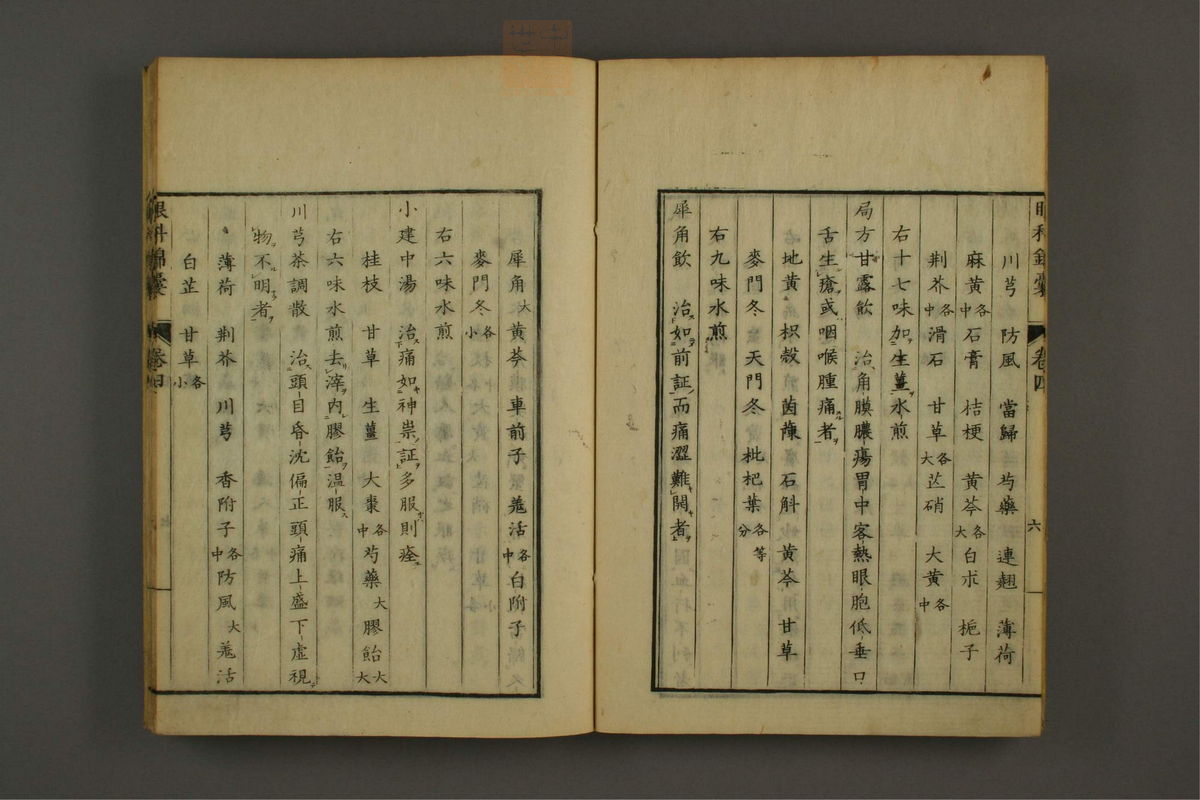 眼科錦囊 卷四 六
川芎 防風 當歸 芍藥 連翹 薄荷
麻黃各中 石膏 桔梗 黃芩各大 白朮 梔子
荆芥各中 滑石 甘草各大 芒硝 大黃各中
右十七味加生薑水煎
局方甘露飮 治角膜膿瘍胃中客熱眼胞低垂口
舌生瘡或咽喉腫痛者
地黃 枳殼 茵蔯 石斛 黃芩 甘草
麥門冬 天門冬 枇杷葉各等分
右九味水煎
犀角飮 治如前証而痛澀難開者
犀角大 黃芩 車前子 羗活各中 白附子
麥門冬各小
右六味水煎
小建中湯 治痛如神祟証多服則痊
桂枝 甘草 生薑 大棗各中 芍藥大 膠飴大大
右六味水煎去滓内膠飴温服
川芎茶調散 治頭目昏沈偏正頭痛上盛下虛視
物不明者
薄荷 荆芥 川芎 香附子各中 防風大 羗活
白芷 甘草各小
眼科錦囊 卷四